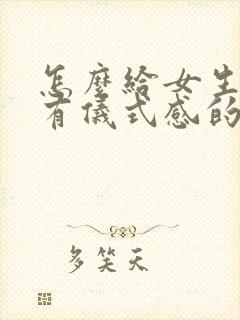 怎麼給女生
有儀式感的
多笑天